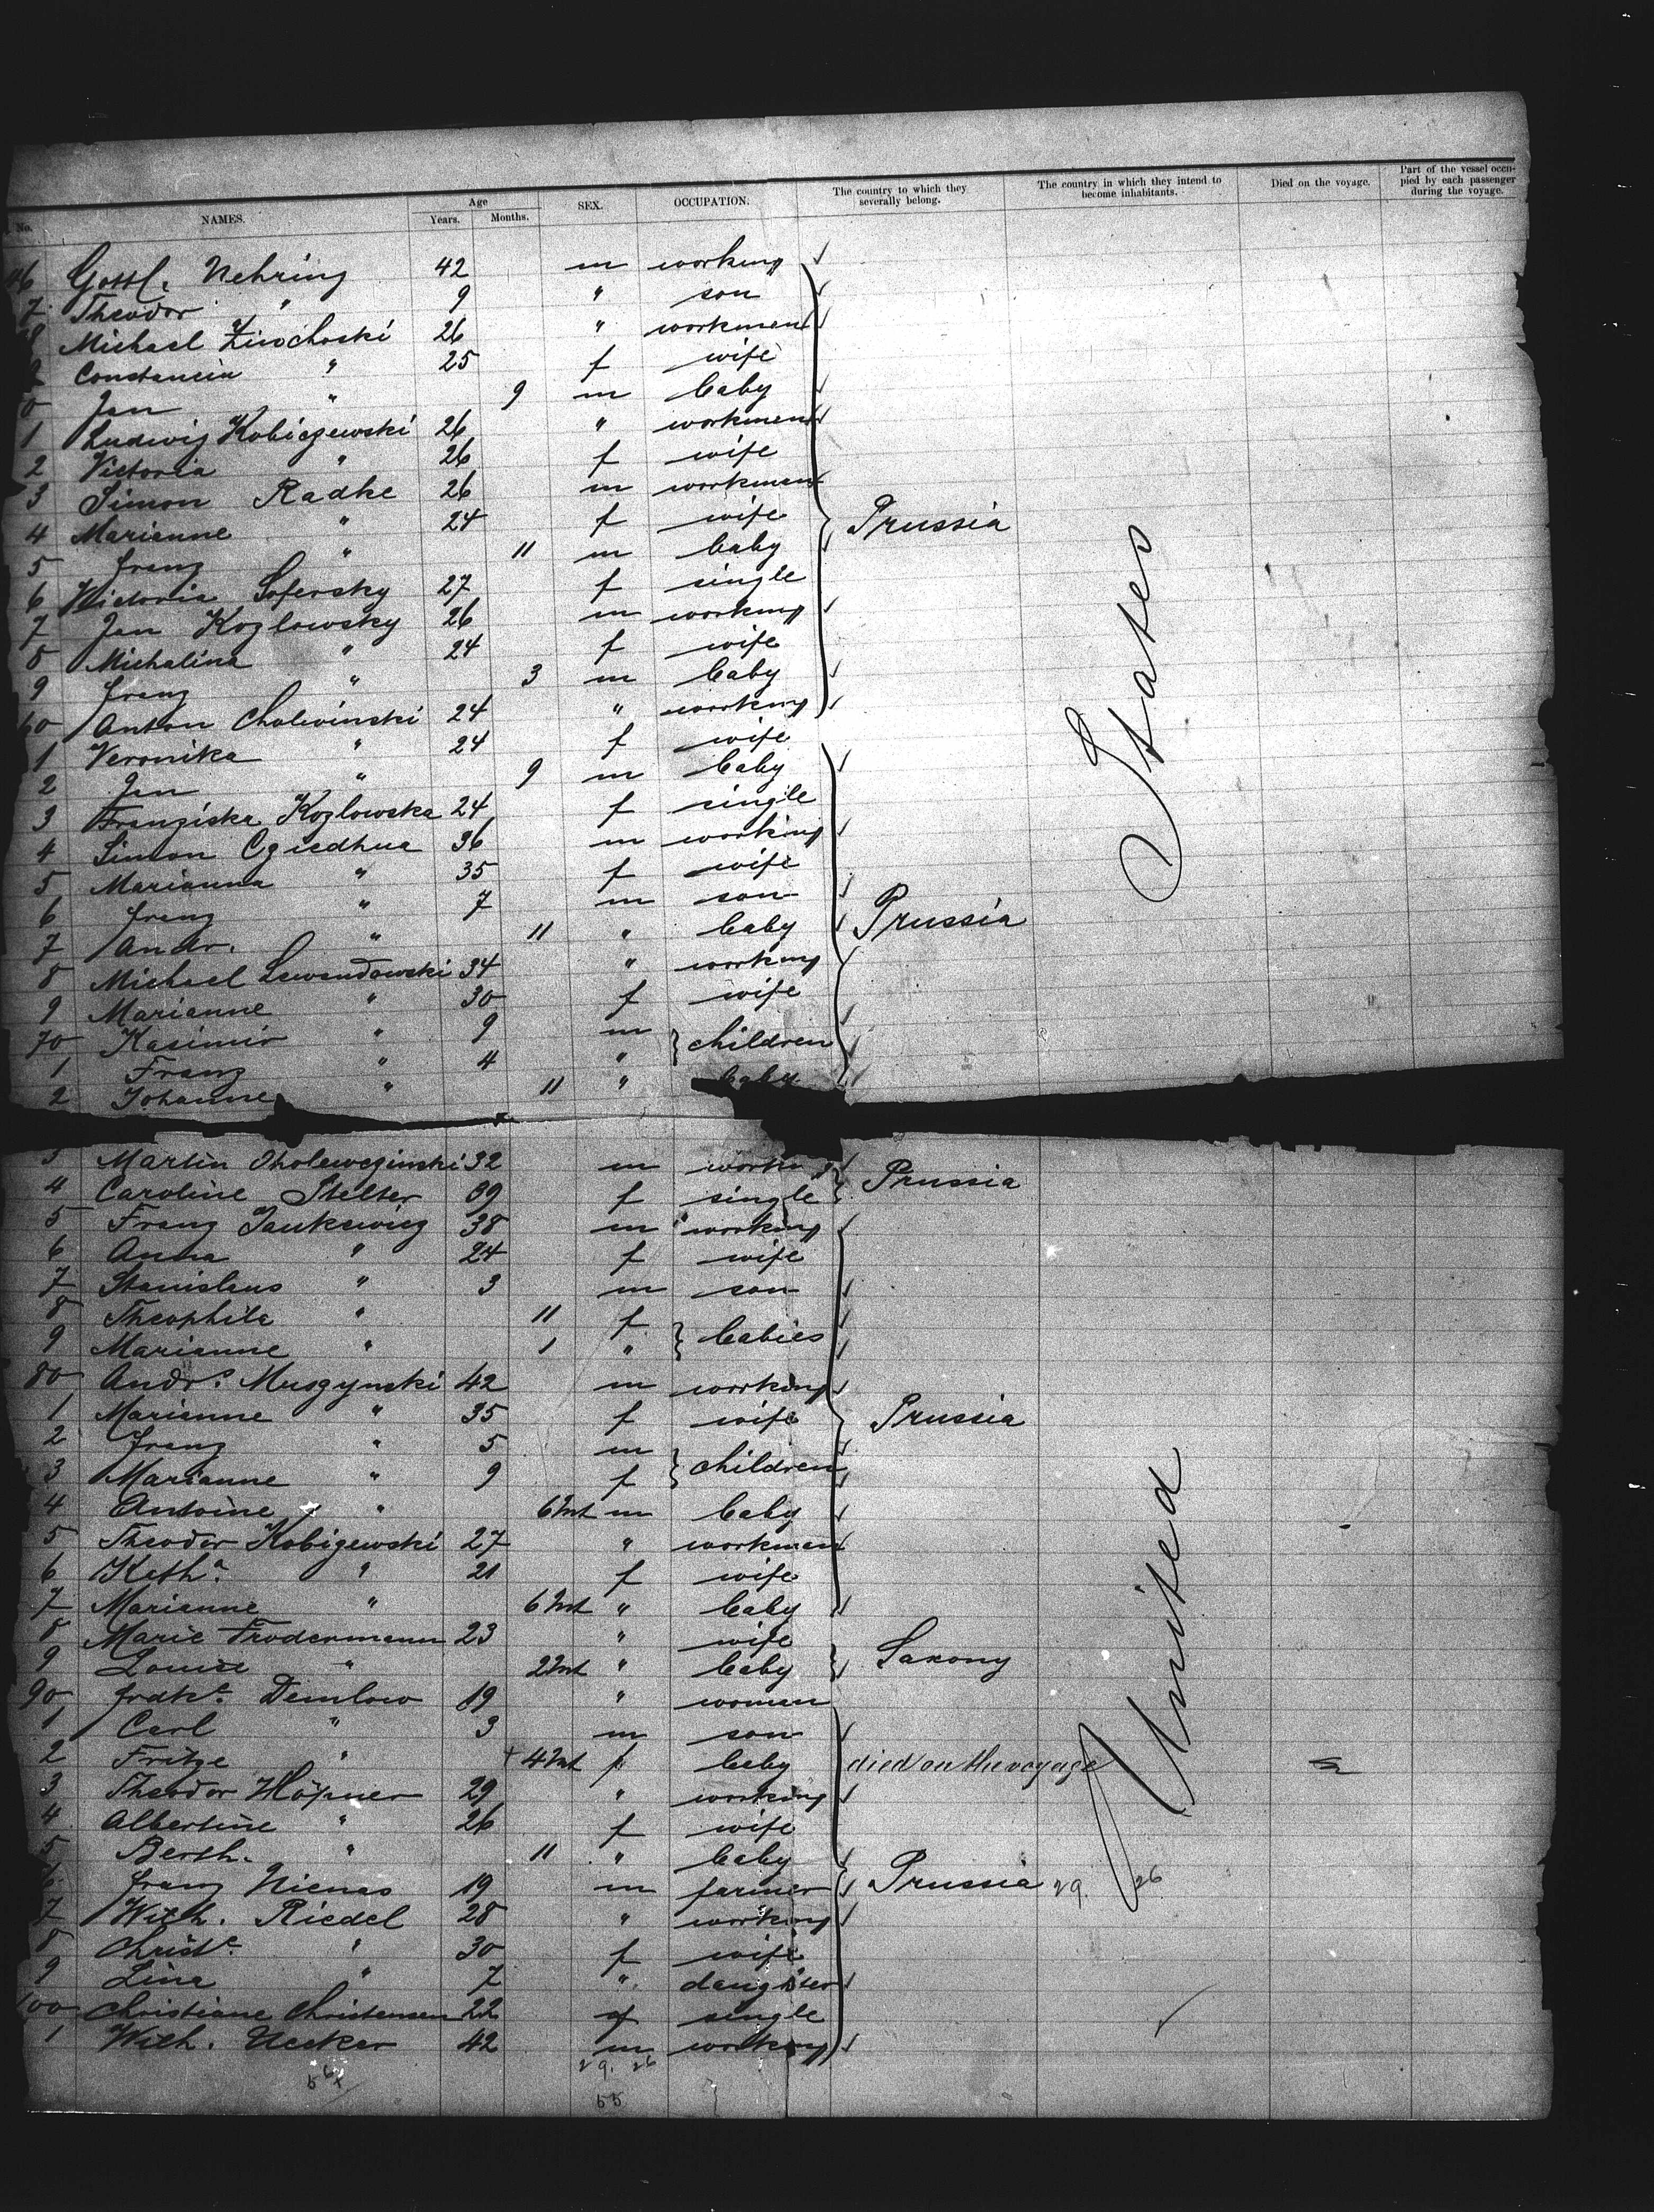 No. NAMES. Age Years. Months. SEX. OCCUPATION. The country to which they severally belong. The country in which they intend to become inhabitants. Died on the voyage. Part of the vessel occupied by each passenger during the voyage.
46 Gottl. Nehring 42 m working
7 Theodor " 9 " son
8 Michael 26 " workment
9 Constancia " 25 f wife
0 Jan " 9 m baby
1 Ludwig Kobiczewski 26 " workment
2 Victoria " 26 f wife
3 Simon Radke 26 m workment
4 Marianne " 24 f wife Prussia
5 franz " 11 m baby
6 Victoria 27 f single
7 Jan Kozlowsky 26 m working
8 Michalina " 24 f wife
9 franz " 3 m baby
60 Anton Cholevinski 24 " working
1 Veronika " 24 f wife
2 Jan " 9 m baby
3 Franziska Kozlowska 24 f single
4 Simon 36 m working
5 Marianna " 35 f wife
6 franz " 7 m son
7 Andr. " 11 " baby Prussia
8 Michael Lewandowski 34 " working
9 Marianne " 30 f wife
70 Kasimir " 9 m children
1 Franz " 4 "
2 Johanne " 11 " baby
3 Martin Cholewczinski 32 m
4 Caroline Stelter 39 f single Prussia
5 Franz Jankewicz 38 m working
6 Anna " 24 f wife
7 Stanislaus " 3 m son
8 Theophila " 11 f babies
9 Marianne " 1 "
80 Andrs. 42 m working
1 Marianne " 35 f wife Prussia
2 franz " 5 m children
3 Marianne " 9 f
4 Antoine " 6 Mt m baby
5 Theodor Kobizewski 27 " workment
6 Katha. " 21 f wife
7 Marianne " 6 Mt " baby
8 Marie Frodermann 23 " wife
9 Louise " 2 Mt " baby Saxony
90 fredke. Demlow 19 " woman
1 Carl " 3 m son
2 Fritze " + 4 Mt f baby died on the voyage
3 Theodor Höpner 29 " working
4 Albertine " 26 f wife
5 Berth. " 11 " baby
6 franz Nienas 19 m farmer Prussia 29. 26
7 Wilh. Riedel 28 " working
8 Christe. " 30 f wife
9 Lina " 7 " daughter
100 Christiane Christensen 22 f single
1 Wilh. Uecker 42 m working
29. 26
55
United States